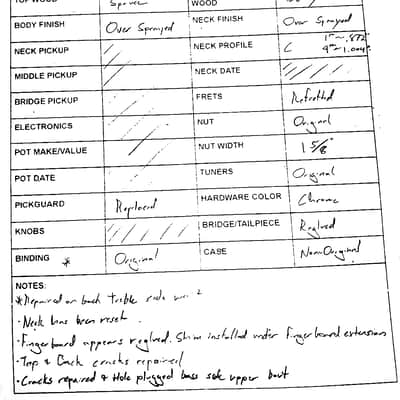 TOP WOOD Spruce WOOD
BODY FINISH Over Sprayed NECK FINISH Over Sprayed
NECK PICKUP NECK PROFILE C 1st ~ .872" 9th ~ 1.004"
MIDDLE PICKUP NECK DATE
BRIDGE PICKUP FRETS Refretted
ELECTRONICS NUT Original
POT MAKE/VALUE NUT WIDTH 1 5/8"
POT DATE TUNERS Original
PICKGUARD Replaced HARDWARE COLOR Chrome
KNOBS BRIDGE/TAILPIECE Reglued
BINDING * Original CASE Non Original
NOTES:
*Repaired on back treble side
· Neck has been reset.
· Fingerboard appears reglued. Shim installed under fingerboard extension
· Top & Back cracks repaired
· Cracks repaired & Hole plugged bass side upper bout